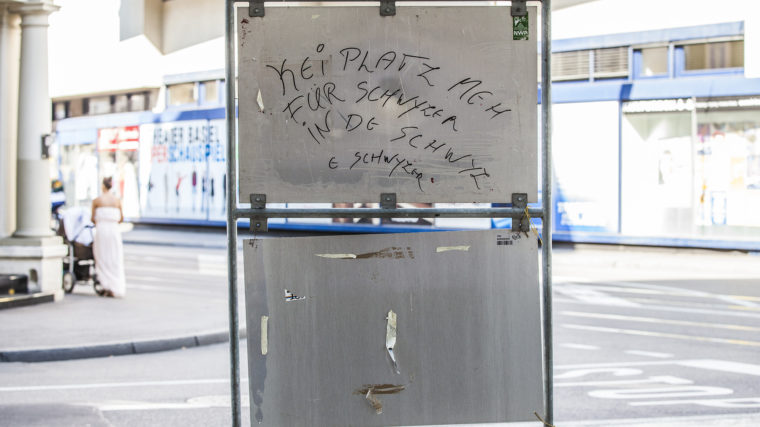 KEi PLATZ MEH
FÜR SCHWYZER
iN DE SCHWYZ
E SCHWYZER.
THEATER BASEL
SCHAUSPIEL